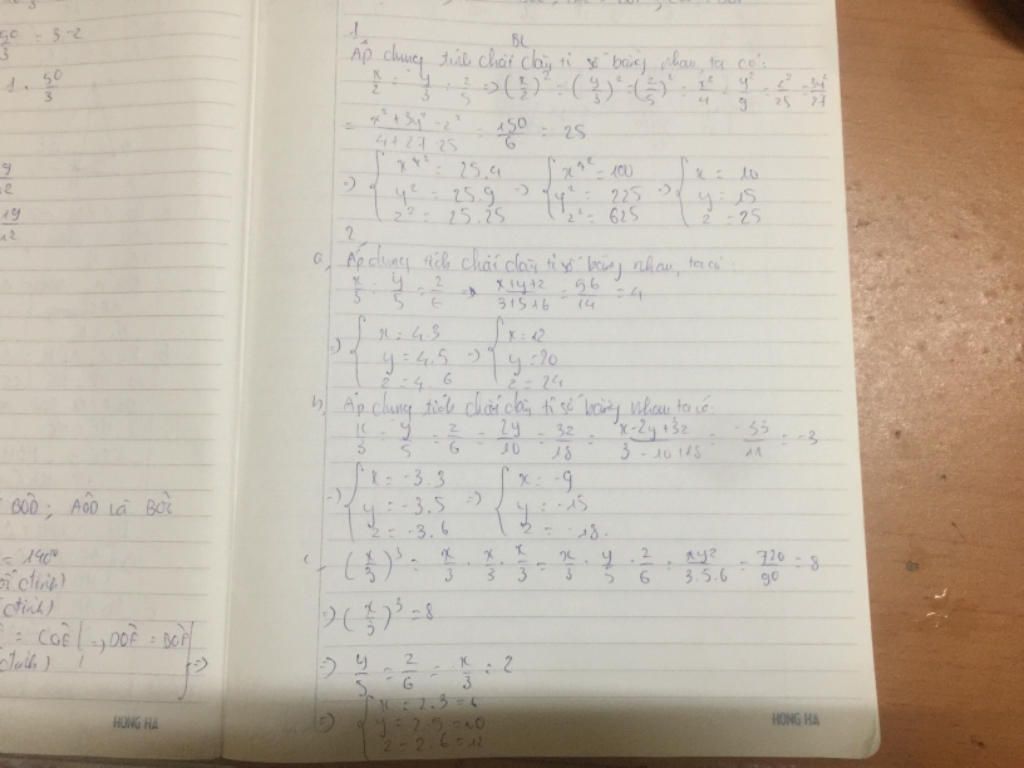 50/3 = 3-2
1 . 50/3
BOD; AOD là BOC
= 140°
(đ tính)
= COE | => DOF = BOF
} =>
HONG HA
1
BL
Áp dụng tính chất dãy tỉ số bằng nhau, ta có:
x/2 = y/3 = z/5 => (x/2)² = (y/3)² = (z/5)² = x²/4 = y²/9 = z²/25 = 3y²/27
= x² + 3y² - z² / 4+27-25 = 150/6 = 25
=> { x² = 25.4 y² = 25.9 z² = 25.25 => { x² = 100 y² = 225 z² = 625 => { x = 10 y = 15 z = 25
2
a, Áp dụng tính chất dãy tỉ số bằng nhau, ta có:
x/3 = y/5 = z/6 => x+y+z / 3+5+6 = 56/14 = 4
=> { x = 4.3 y = 4.5 z = 4.6 => { x = 12 y = 20 z = 24
b, Áp dụng tính chất dãy tỉ số bằng nhau ta có:
x/3 = y/5 = z/6 = 2y/10 = 3z/18 = x-2y+3z / 3-10+18 = -33/11 = -3
=> { x = -3.3 y = -3.5 z = -3.6 => { x = -9 y = -15 z = -18.
c, (x/3)³ = x/3 . x/3 . x/3 = x/3 . y/5 . z/6 = xyz/3.5.6 = 720/90 = 8
=> (x/3)³ = 8
=> y/5 = z/6 = x/3 = 2
=> { x = 2.3 = 6 y = 2.5 = 10 z = 2.6 = 12
HONG HA